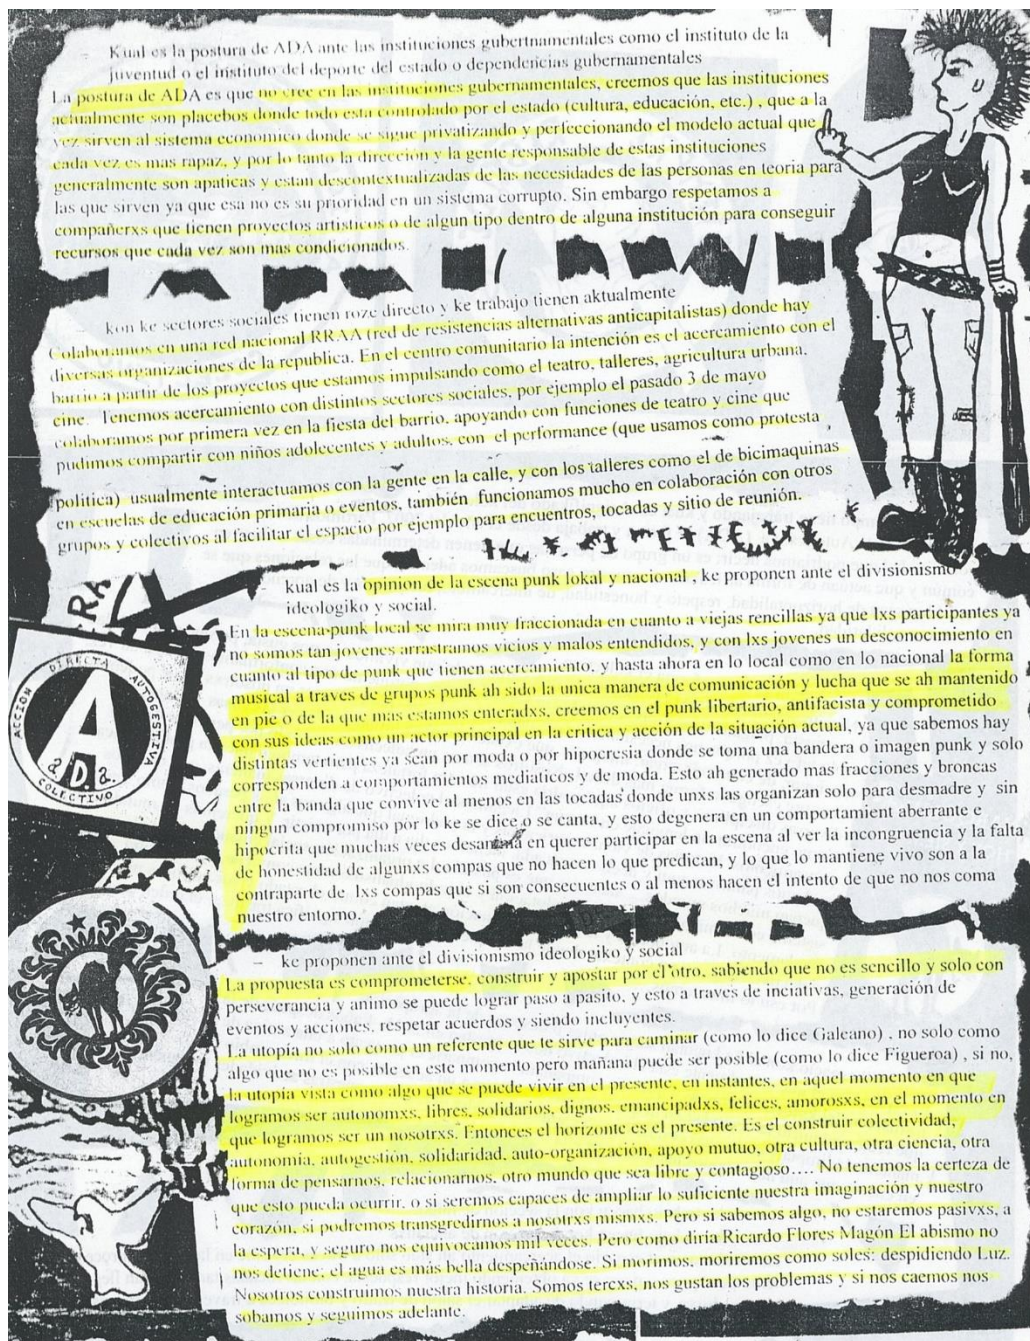 - Kual es la postura de ADA ante las instituciones gubertnamentales como el instituto de la
juventud o el instituto del deporte del estado o dependencias gubernamentales
La postura de ADA es que no cree en las instituciones gubernamentales, creemos que las instituciones
actualmente son placebos donde todo esta controlado por el estado (cultura, educación, etc.) , que a la
vez sirven al sistema economico donde se sigue privatizando y perfeccionando el modelo actual que
cada vez es mas rapaz, y por lo tanto la dirección y la gente responsable de estas instituciones
generalmente son apaticas y estan descontextualizadas de las necesidades de las personas en teoria para
las que sirven ya que esa no es su prioridad en un sistema corrupto. Sin embargo respetamos a
compañerxs que tienen proyectos artisticos o de algun tipo dentro de alguna institución para conseguir
recursos que cada vez son mas condicionados.
- kon ke sectores sociales tienen roze directo y ke trabajo tienen aktualmente
Colaboramos en una red nacional RRAA (red de resistencias alternativas anticapitalistas) donde hay
diversas organizaciones de la republica. En el centro comunitario la intención es el acercamiento con el
barrio a partir de los proyectos que estamos impulsando como el teatro, talleres, agricultura urbana,
cine. Tenemos acercamiento con distintos sectores sociales, por ejemplo el pasado 3 de mayo
colaboramos por primera vez en la fiesta del barrio, apoyando con funciones de teatro y cine que
pudimos compartir con niños adolecentes y adultos, con el performance (que usamos como protesta
politica) usualmente interactuamos con la gente en la calle, y con los talleres como el de bicimaquinas
en escuelas de educación primaria o eventos, también funcionamos mucho en colaboración con otros
grupos y colectivos al facilitar el espacio por ejemplo para encuentros, tocadas y sitio de reunión.
kual es la opinion de la escena punk lokal y nacional , ke proponen ante el divisionismo
ideologiko y social.
En la escena punk local se mira muy fraccionada en cuanto a viejas rencillas ya que lxs participantes ya
no somos tan jovenes arrastramos vicios y malos entendidos, y con lxs jovenes un desconocimiento en
cuanto al tipo de punk que tienen acercamiento, y hasta ahora en lo local como en lo nacional la forma
musical a traves de grupos punk ah sido la unica manera de comunicación y lucha que se ah mantenido
en pie o de la que mas estamos enteradxs, creemos en el punk libertario, antifacista y comprometido
con sus ideas como un actor principal en la critica y acción de la situación actual, ya que sabemos hay
distintas vertientes ya sean por moda o por hipocresia donde se toma una bandera o imagen punk y solo
corresponden a comportamientos mediaticos y de moda. Esto ah generado mas fracciones y broncas
entre la banda que convive al menos en las tocadas donde unxs las organizan solo para desmadre y sin
ningun compromiso por lo ke se dice o se canta, y esto degenera en un comportamient aberrante e
hipocrita que muchas veces desanima en querer participar en la escena al ver la incongruencia y la falta
de honestidad de algunxs compas que no hacen lo que predican, y lo que lo mantiene vivo son a la
contraparte de lxs compas que si son consecuentes o al menos hacen el intento de que no nos coma
nuestro entorno.
RRA
ACCION DIRECTA AUTOGESTIVA
A
a.D.a.
COLECTIVO
- ke proponen ante el divisionismo ideologiko y social
La propuesta es comprometerse, construir y apostar por el otro, sabiendo que no es sencillo y solo con
perseverancia y animo se puede lograr paso a pasito, y esto a traves de inciativas, generación de
eventos y acciones, respetar acuerdos y siendo incluyentes.
La utopía no solo como un referente que te sirve para caminar (como lo dice Galeano) , no solo como
algo que no es posible en este momento pero mañana puede ser posible (como lo dice Figueroa) , si no,
la utopia vista como algo que se puede vivir en el presente, en instantes, en aquel momento en que
logramos ser autonomxs, libres, solidarios, dignos, emancipadxs, felices, amorosxs, en el momento en
que logramos ser un nosotrxs. Entonces el horizonte es el presente. Es el construir colectividad,
autonomía, autogestión, solidaridad, auto-organización, apoyo mutuo, otra cultura, otra ciencia, otra
forma de pensarnos, relacionarnos, otro mundo que sea libre y contagioso.... No tenemos la certeza de
que esto pueda ocurrir, o si seremos capaces de ampliar lo suficiente nuestra imaginación y nuestro
corazón, si podremos transgredirnos a nosotrxs mismxs. Pero si sabemos algo, no estaremos pasivxs, a
la espera, y seguro nos equivocamos mil veces. Pero como diría Ricardo Flores Magón El abismo no
nos detiene; el agua es más bella despeñándose. Si morimos, moriremos como soles: despidiendo Luz.
Nosotros construimos nuestra historia. Somos tercxs, nos gustan los problemas y si nos caemos nos
sobamos y seguimos adelante.